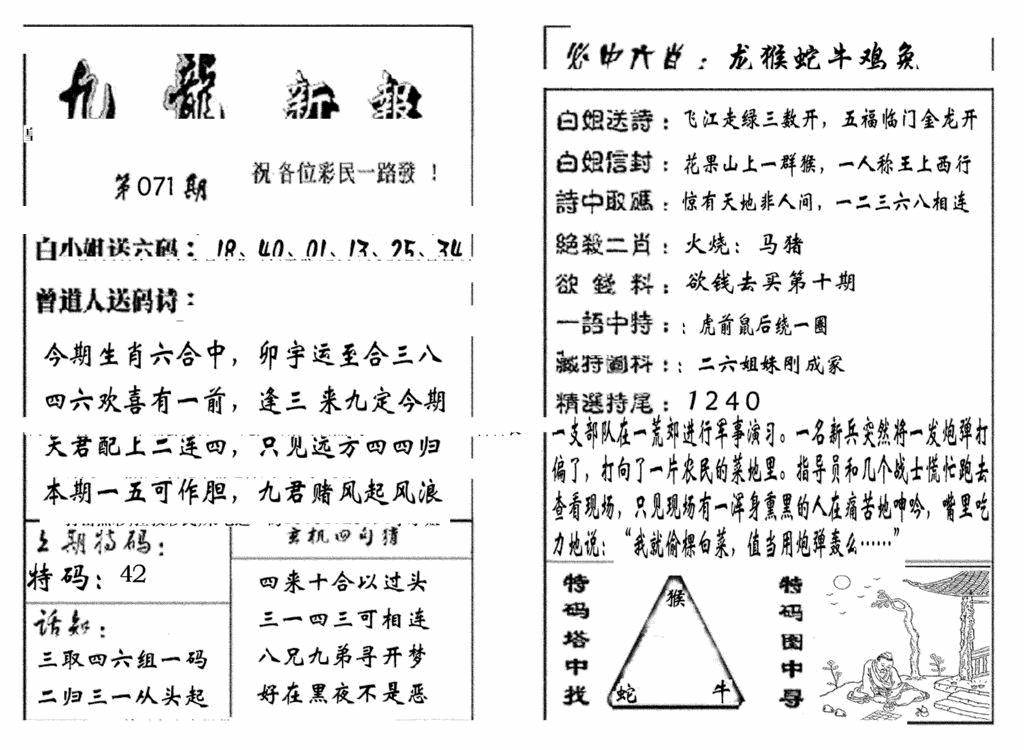 九龍新報
第071期
祝各位彩民一路發！
白小姐送六码：18、40、01、13、25、34
曾道人送码诗：
今期生肖六合中，卯宇运至合三八
四六欢喜有一前，逢三来九定今期
天君配上二连四，只见远方四四归
本期一五可作胆，九君赌风起风浪
上期特码：
特码：42
话知：
三取四六组一码
二归三一从头起
玄机四句猜
四来十合以过头
三一四三可相连
八兄九弟寻开梦
好在黑夜不是恶
必中六肖：龙猴蛇牛鸡兔
白姐送詩：飞江走绿三数开，五福临门金龙开
白姐信封：花果山上一群猴，一人称王上西行
詩中取碼：惊有天地非人间，一二三六八相连
絕殺二肖：火烧：马猪
欲錢料：欲钱去买第十期
一語中特：：虎前鼠后绕一圈
藏特圖料：：二六姐妹刚成冢
精選特尾：1240
一支部队在一荒郊进行军事演习。一名新兵突然将一发炮弹打
偏了，打向了一片农民的菜地里。指导员和几个战士慌忙跑去
查看现场，只见现场有一浑身熏黑的人在痛苦地呻吟，嘴里吃
力地说：“我就偷棵白菜，值当用炮弹轰么……”
特码塔中找
猴
蛇
牛
特码图中寻